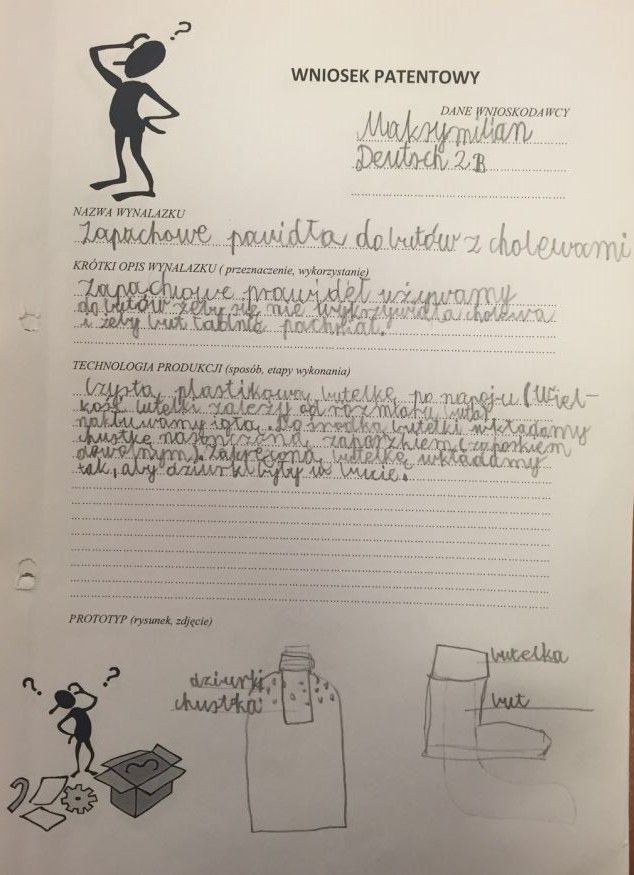 WNIOSEK PATENTOWY
DANE WNIOSKODAWCY
Maksymilian
Deutsch 2B
NAZWA WYNALAZKU
Zapachowe pawidła do butów z cholewami
KRÓTKI OPIS WYNALAZKU ( przeznaczenie, wykorzystanie)
Zapachowe prawideł używamy
do butów żeby się nie wykrzywidła cholewa
i żeby but ładnie pachniał.
TECHNOLOGIA PRODUKCJI (sposób, etapy wykonania)
Czystą plastikową butelkę po napoju (Wiel-
kość butelki zależy od rozmiaru buta)
nakłuwamy igłą. Do środka butelki wkładamy
chustkę nasączoną zapaszkiem (zapaskiem
dowolnym). Zakręconą butelkę wkładamy
tak, aby dziurki były w bucie.
PROTOTYP (rysunek, zdjęcie)
dziurki
chustka
butelka
but